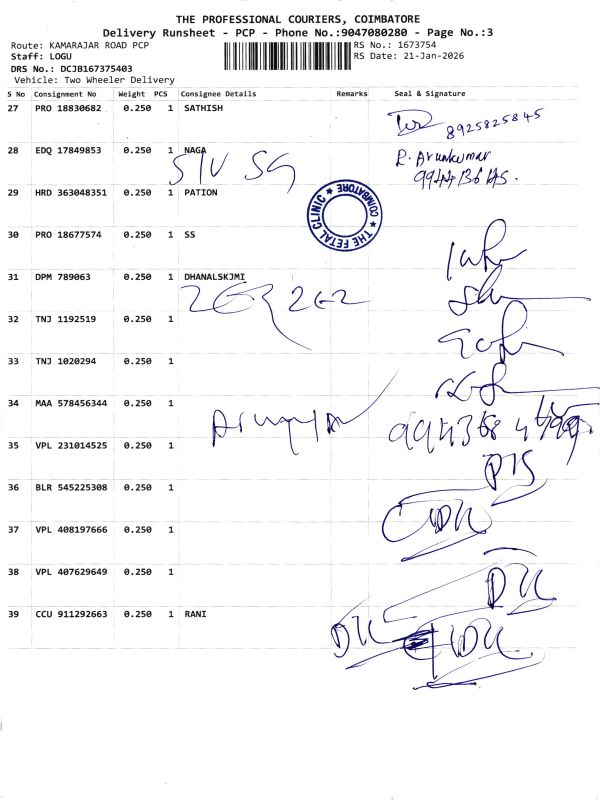 THE PROFESSIONAL COURIERS, COIMBATORE
Delivery Runsheet - PCP - Phone No.:9047080280 - Page No.:3
Route: KAMARAJAR ROAD PCP
RS No.: 1673754
Staff: LOGU
RS Date: 21-Jan-2026
DRS No.: DCJB167375403
Vehicle: Two Wheeler Delivery
S No Consignment No Weight PCS Consignee Details Remarks Seal & Signature
27 PRO 18830682 0.250 1 SATHISH
8925825845
28 EDQ 17849853 0.250 1 NAGA
R. Arunkumar
29 HRD 363048351 0.250 1 PATION
THE FETAL CLINIC ★ COIMBATORE ★
30 PRO 18677574 0.250 1 SS
31 DPM 789063 0.250 1 DHANALSKJMI
32 TNJ 1192519 0.250 1
33 TNJ 1020294 0.250 1
34 MAA 578456344 0.250 1
35 VPL 231014525 0.250 1
36 BLR 545225308 0.250 1
37 VPL 408197666 0.250 1
38 VPL 407629649 0.250 1
39 CCU 911292663 0.250 1 RANI